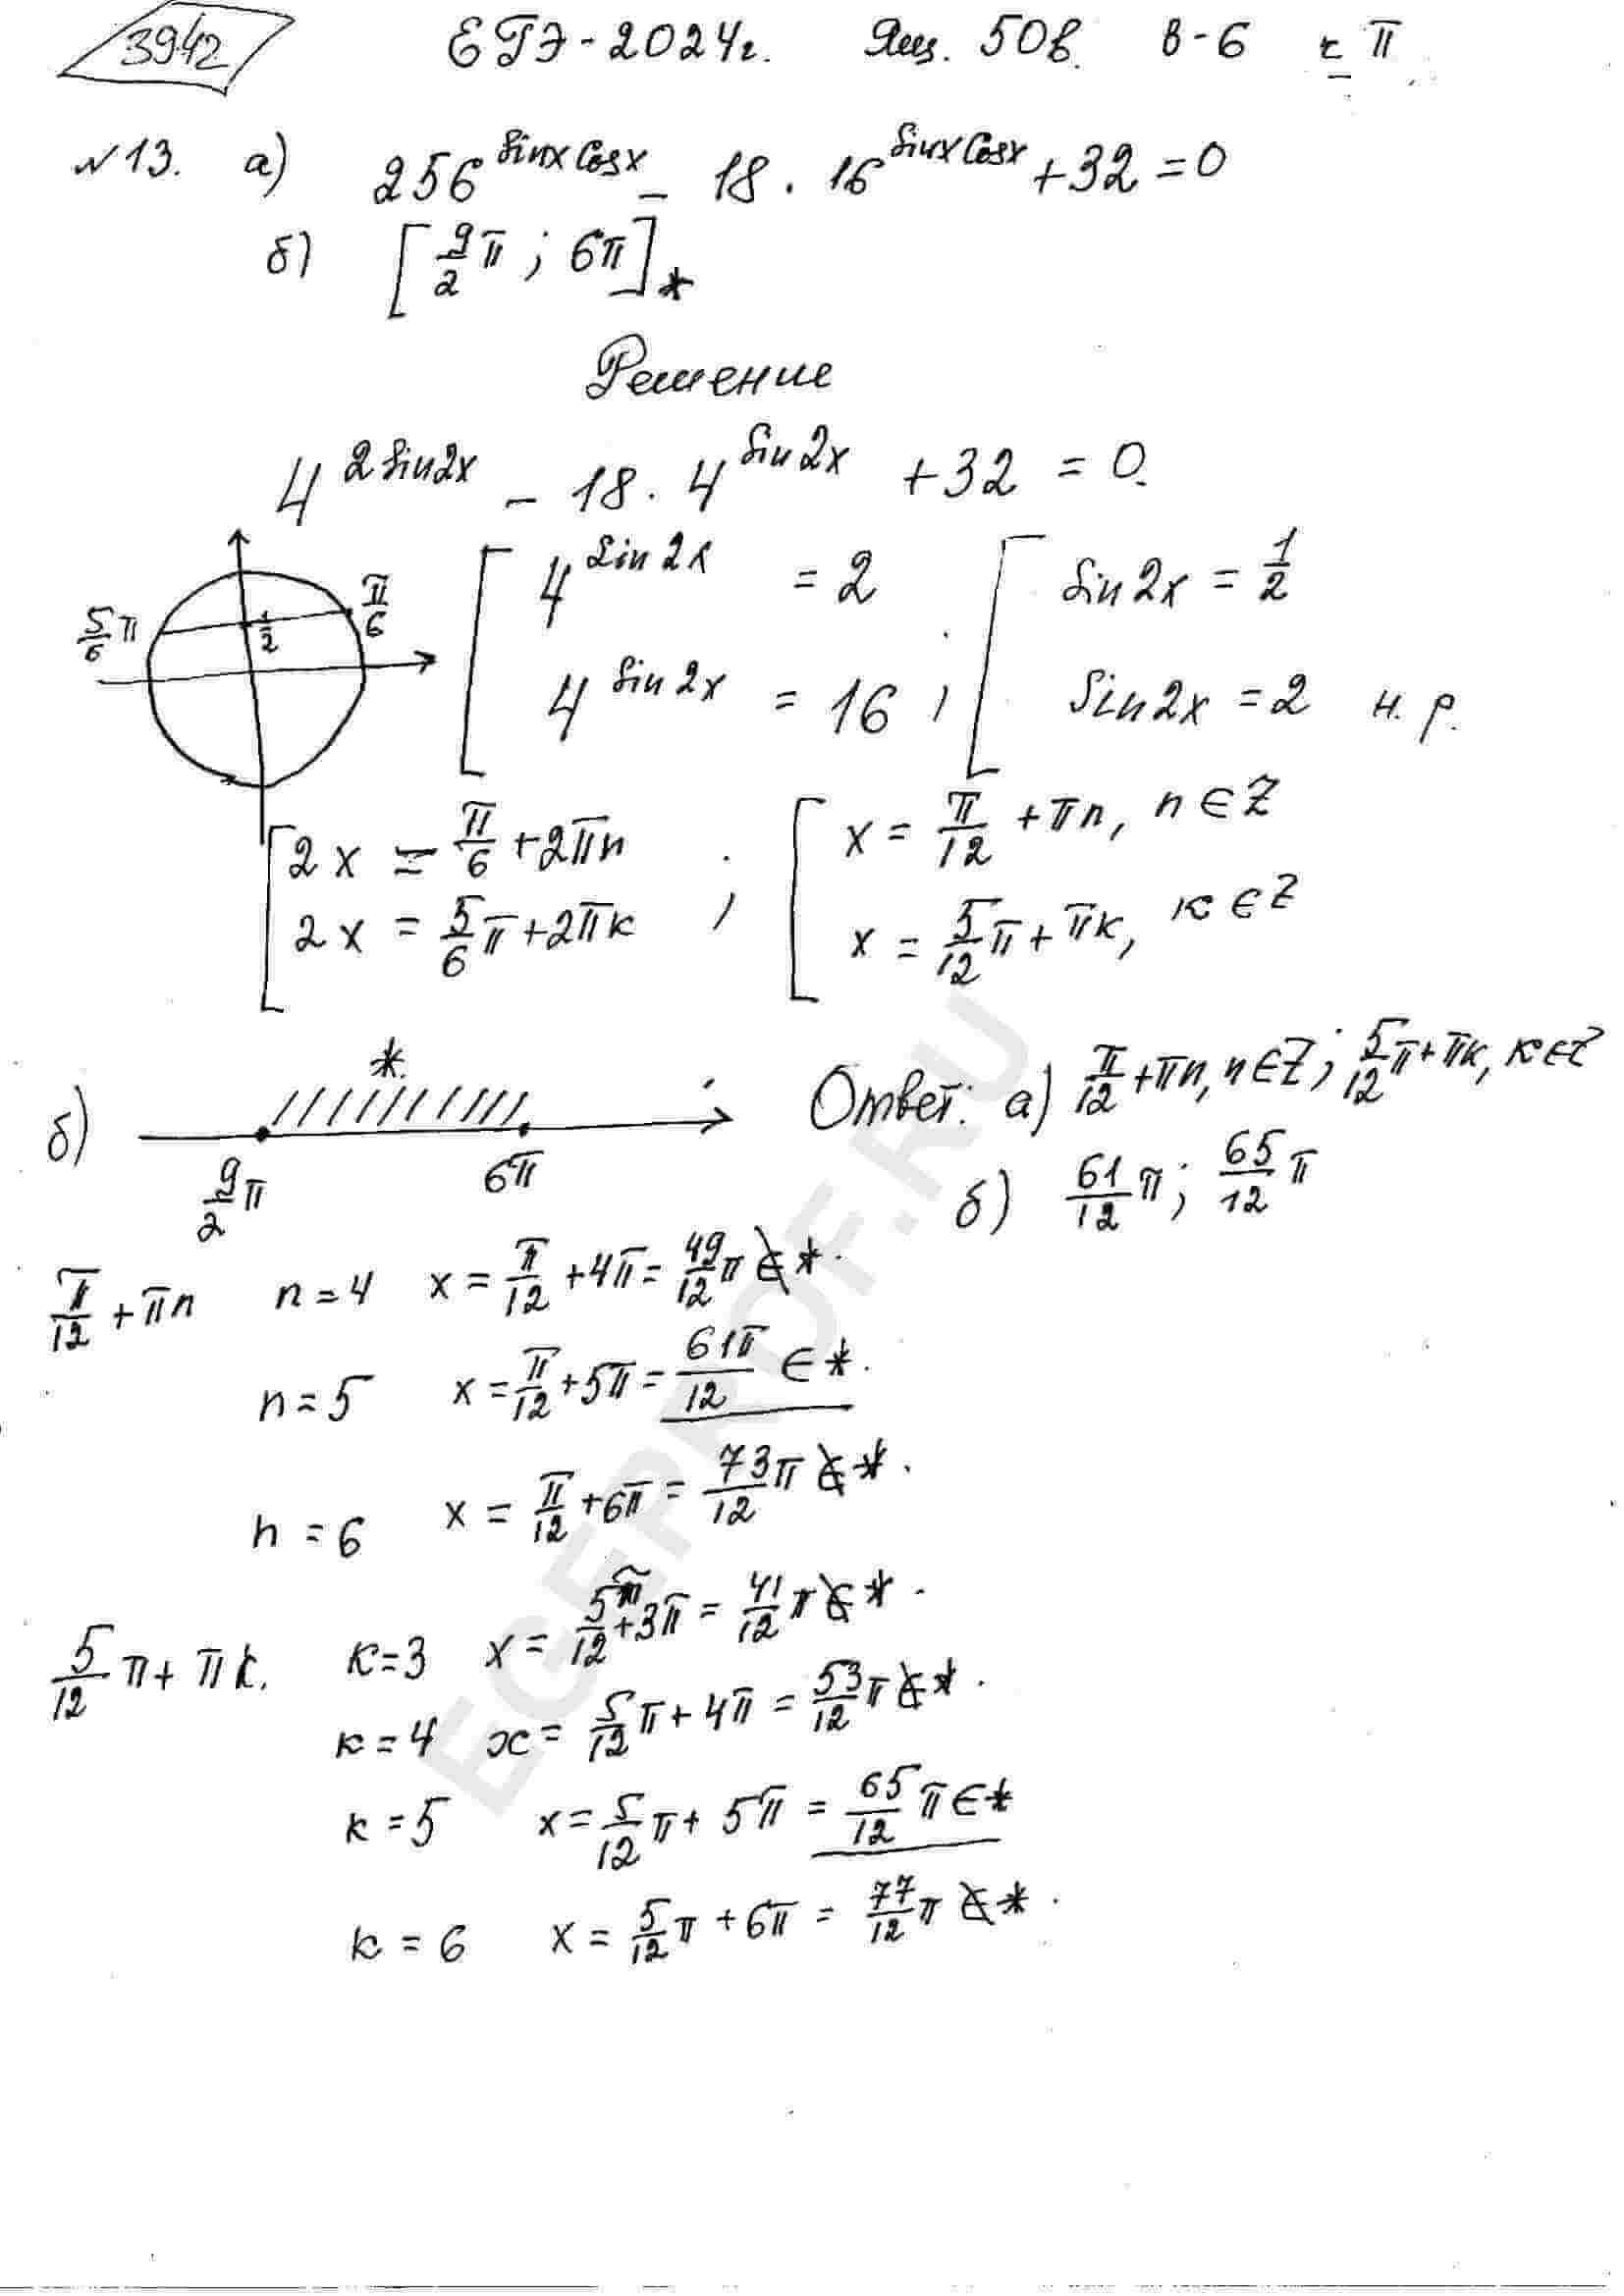 3942
ЕГЭ-2024г. Ящ. 50в. в-6 ч II
№13. а) 256^(sinx cosx) - 18 · 16^(sinx cosx) + 32 = 0
б) [9/2 π ; 6π]*
Решение
4^(2sin2x) - 18 · 4^(sin2x) + 32 = 0.
5/6 π 1/2 π/6
[ 4^(sin2x) = 2
4^(sin2x) = 16 ;
[ sin2x = 1/2
sin2x = 2 н.р.
[ 2x = π/6 + 2πn
2x = 5/6 π + 2πк ;
[ x = π/12 + πn, n ∈ Z
x = 5/12 π + πк, к ∈ Z
б) *
9/2 π 6π
Ответ: а) π/12 + πn, n ∈ Z ; 5/12 π + πк, к ∈ Z
б) 61/12 π ; 65/12 π
π/12 + πn n = 4 x = π/12 + 4π = 49/12 π ∉ *.
n = 5 x = π/12 + 5π = 61π/12 ∈ *.
n = 6 x = π/12 + 6π = 73/12 π ∉ *.
5/12 π + πк. к = 3 x = 5π/12 + 3π = 41/12 π ∉ *.
к = 4 x = 5/12 π + 4π = 53/12 π ∉ *.
к = 5 x = 5/12 π + 5π = 65/12 π ∈ *
к = 6 x = 5/12 π + 6π = 77/12 π ∉ *.
EGEPROF.RU